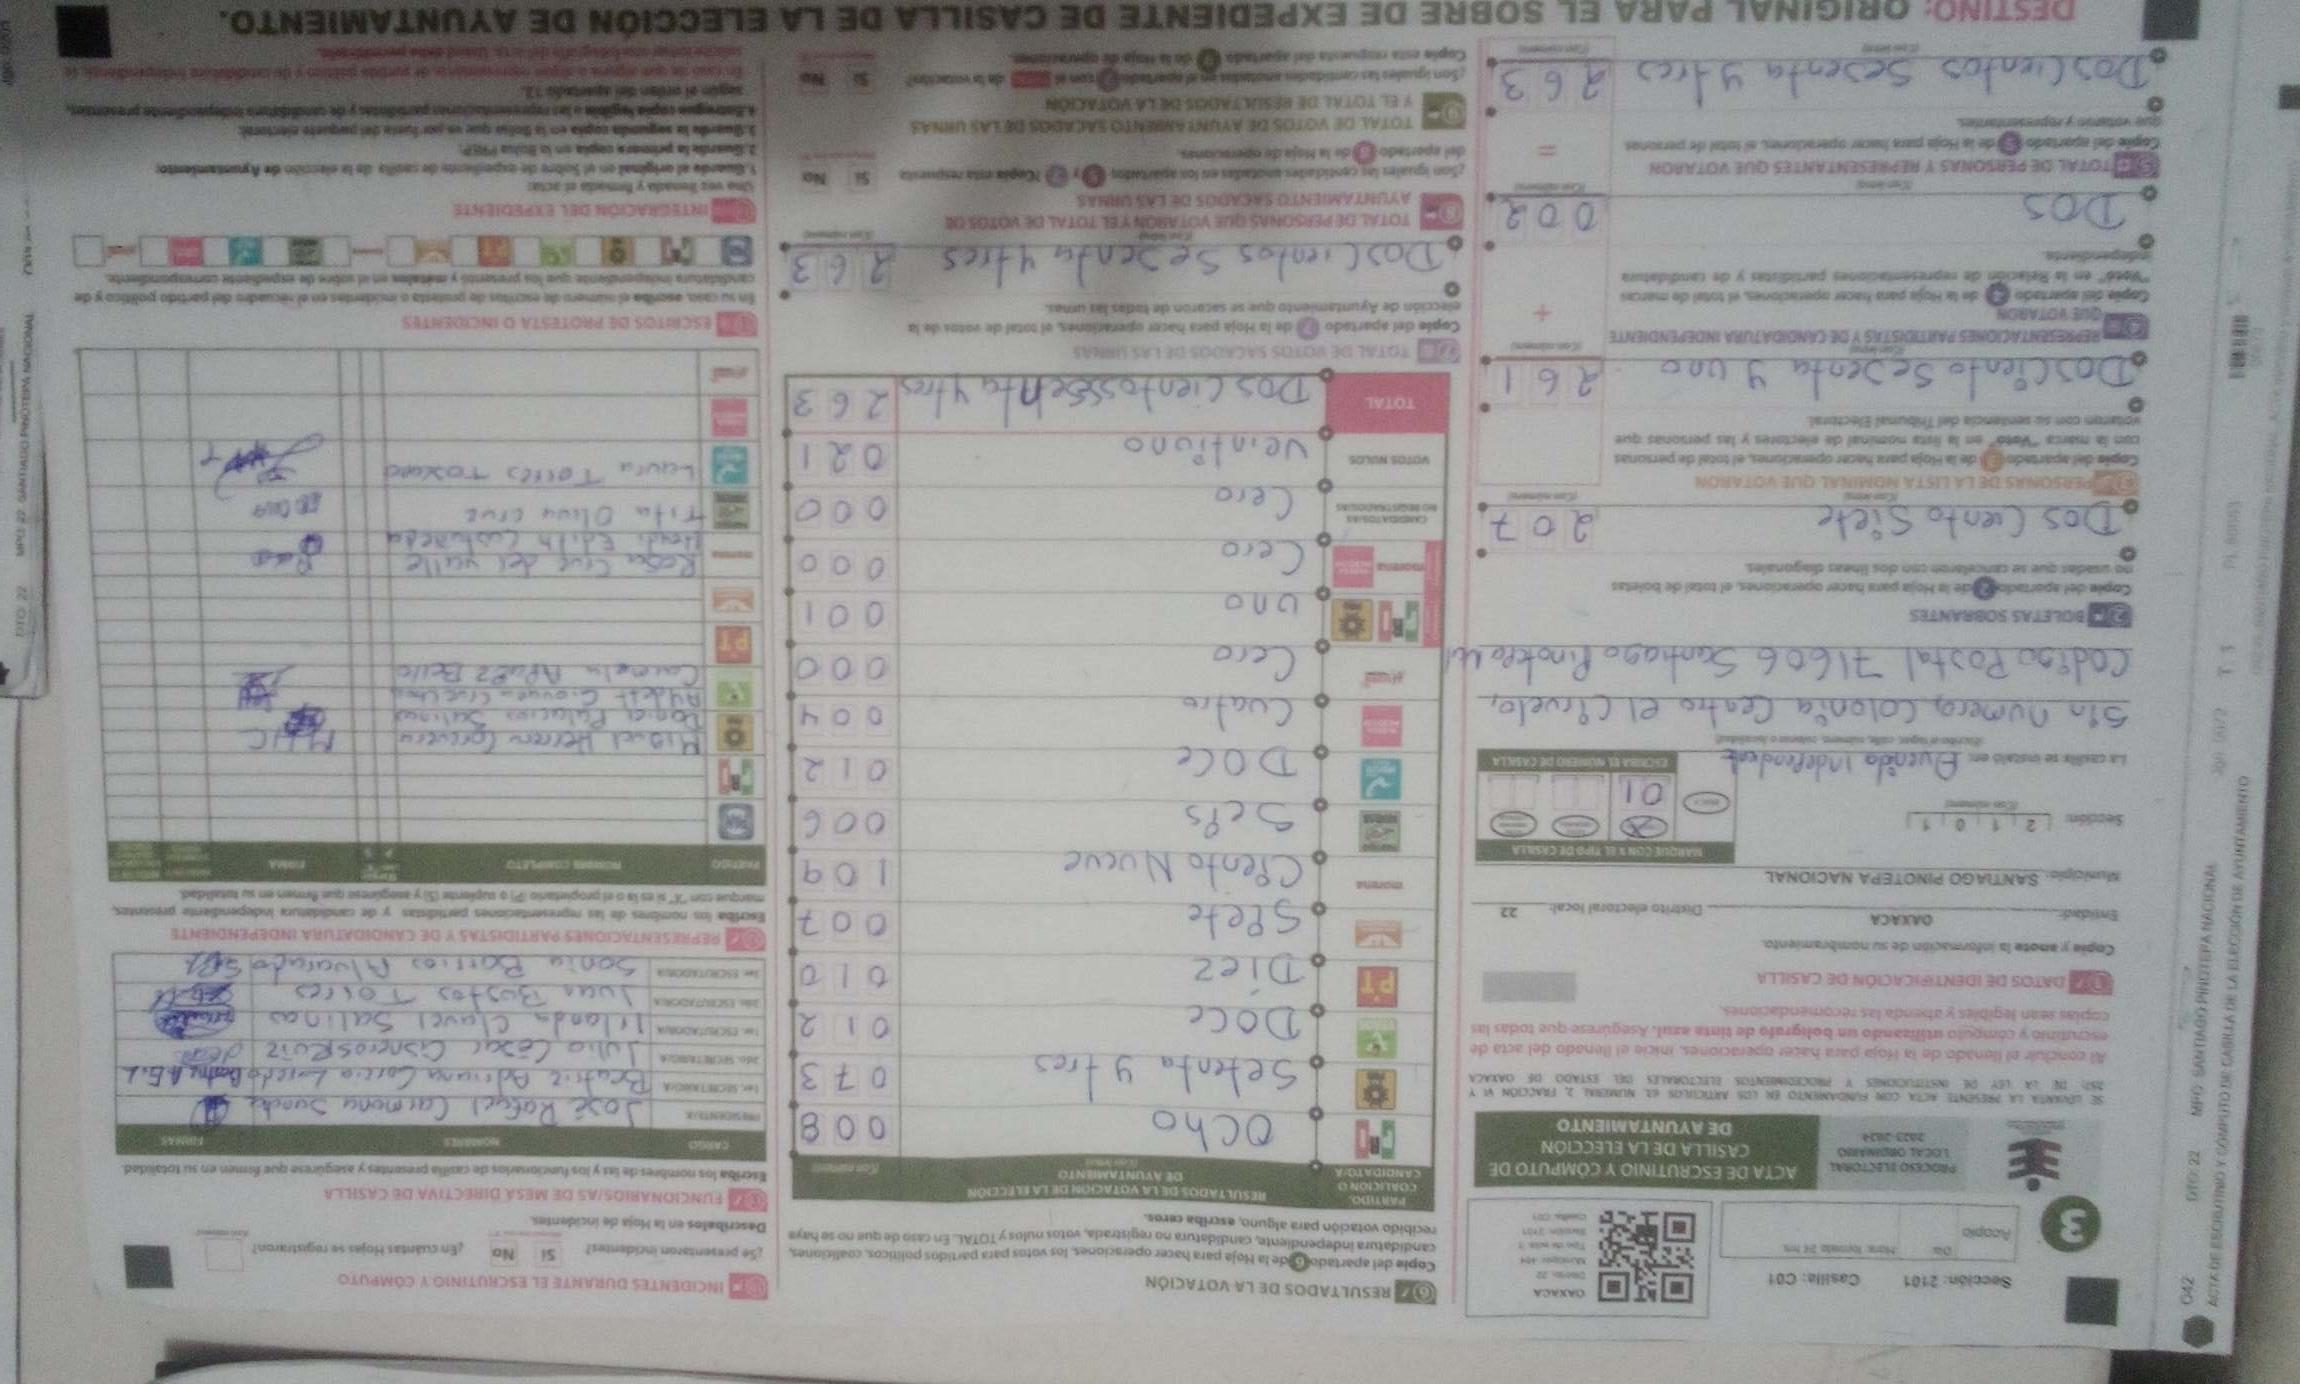 3
Sección: 2101 Casilla: C01
Acopio
Día
Hora: formato 24 hrs.
OAXACA
Distrito: 22
Sección: 2101
Casilla: C01
PROCESO ELECTORAL
LOCAL ORDINARIO
2023-2024
ACTA DE ESCRUTINIO Y CÓMPUTO DE
CASILLA DE LA ELECCIÓN
DE AYUNTAMIENTO
SE LEVANTA LA PRESENTE ACTA CON FUNDAMENTO EN LOS ARTÍCULOS 63, NUMERAL 2, FRACCIÓN VI Y
257; DE LA LEY DE INSTITUCIONES Y PROCEDIMIENTOS ELECTORALES DEL ESTADO DE OAXACA
Al concluir el llenado de la Hoja para hacer operaciones, inicie el llenado del acta de
escrutinio y cómputo utilizando un bolígrafo de tinta azul. Asegúrese que todas las
copias sean legibles y atienda las recomendaciones.
1 DATOS DE IDENTIFICACIÓN DE CASILLA
Copie y anote la información de su nombramiento.
Entidad: OAXACA Distrito electoral local: 22
Municipio: SANTIAGO PINOTEPA NACIONAL
Sección: 2101
(Con número)
MARQUE CON X EL TIPO DE CASILLA
X
01
ESCRIBA EL NÚMERO DE CASILLA
La casilla se instaló en: Avenida Independencia
(Escriba el lugar, calle, número, colonia o localidad)
Sin numero, Colonia Centro el Ciruelo,
Codigo Postal 71606 Santiago Pinotepa
2 BOLETAS SOBRANTES
Copie del apartado 2 de la Hoja para hacer operaciones, el total de boletas
no usadas que se cancelaron con dos líneas diagonales.
Dos Ciento Siete 207
(Con letra) (Con número)
3 PERSONAS DE LA LISTA NOMINAL QUE VOTARON
Copie del apartado 3 de la Hoja para hacer operaciones, el total de personas
con la marca "Votó" en la lista nominal de electores y las personas que
votaron con su sentencia del Tribunal Electoral.
Dos Ciento Sesenta y uno 261
(Con letra) (Con número)
4 REPRESENTACIONES PARTIDISTAS Y DE CANDIDATURA INDEPENDIENTE
QUE VOTARON
+
Copie del apartado 4 de la Hoja para hacer operaciones, el total de marcas
"Votó" en la Relación de representaciones partidistas y de candidatura
independiente.
DOS 002
(Con letra) (Con número)
5 TOTAL DE PERSONAS Y REPRESENTANTES QUE VOTARON
=
Copie del apartado 5 de la Hoja para hacer operaciones, el total de personas
que votaron y representantes.
Dos Cientos Sesenta y tres 263
(Con letra) (Con número)
6 RESULTADOS DE LA VOTACIÓN
Copie del apartado 6 de la Hoja para hacer operaciones, los votos para partidos políticos, coaliciones,
candidatura independiente, candidatura no registrada, votos nulos y TOTAL. En caso de que no se haya
recibido votación para alguno, escriba ceros.
PARTIDO,
COALICIÓN O
CANDIDATO/A
RESULTADOS DE LA VOTACIÓN DE LA ELECCIÓN
DE AYUNTAMIENTO
(Con letra) (Con número)
PRI Ocho 008
PRD Setenta y tres 073
DOCE 012
PT Díez 010
Siete 007
morena Ciento Nueve 109
Seis 006
DOCE 012
Cuatro 004
Cero 000
PRI PRD uno 001
morena Cero 000
CANDIDATOS/AS
NO REGISTRADOS/AS
Cero 000
VOTOS NULOS Veintiuno 021
TOTAL 263
7 TOTAL DE VOTOS SACADOS DE LAS URNAS
Copie del apartado 7 de la Hoja para hacer operaciones, el total de votos de la
elección de Ayuntamiento que se sacaron de todas las urnas.
Dos Cientos Sesenta y tres 263
(Con letra) (Con número)
8 TOTAL DE PERSONAS QUE VOTARON Y EL TOTAL DE VOTOS DE
AYUNTAMIENTO SACADOS DE LAS URNAS
¿Son iguales las cantidades anotadas en los apartados 5 y 7? (Copie esta respuesta
del apartado 8 de la Hoja de operaciones.
Sí No
9 TOTAL DE VOTOS DE AYUNTAMIENTO SACADOS DE LAS URNAS
Y EL TOTAL DE RESULTADOS DE LA VOTACIÓN
¿Son iguales las cantidades anotadas en el apartado 7 con el TOTAL de la votación?
Copie esta respuesta del apartado 9 de la Hoja de operaciones.
Sí No
INCIDENTES DURANTE EL ESCRUTINIO Y CÓMPUTO
¿Se presentaron incidentes? Sí No ¿En cuántas Hojas se registraron?
Descríbalos en la Hoja de incidentes.
FUNCIONARIOS/AS DE MESA DIRECTIVA DE CASILLA
Escriba los nombres de las y los funcionarios de casilla presentes y asegúrese que firmen en su totalidad.
CARGO NOMBRES FIRMAS
PRESIDENTE/A José Rafael Carmona
1er. SECRETARIO/A Beatriz Adriana Garcia
2do. SECRETARIO/A Julio César Cisneros Ruiz
1er. ESCRUTADOR/A Irlanda Clavel Salinas
2do. ESCRUTADOR/A Juan Bustos Torres
3er. ESCRUTADOR/A Sonia Barrios Alvarado
REPRESENTACIONES PARTIDISTAS Y DE CANDIDATURA INDEPENDIENTE
Escriba los nombres de las representaciones partidistas y de candidatura independiente presentes,
marque con "X" si es la o el propietario (P) o suplente (S) y asegúrese que firmen en su totalidad.
PARTIDO NOMBRE COMPLETO FIRMA
PAN
PRI
PRD Miguel Herrera MHC
Daniel Palacios Salinas
PT
morena Rosa Cruz del valle
Heidi Edith Castañeda
Tita Oliva Cruz
Laura Torres Toscano
ESCRITOS DE PROTESTA O INCIDENTES
En su caso, escriba el número de escritos de protesta o incidentes en el recuadro del partido político y de
candidatura independiente que los presentó y métalos en el sobre de expediente correspondiente.
INTEGRACIÓN DEL EXPEDIENTE
Una vez llenada y firmada el acta:
1. Guarde el original en el Sobre de expediente de casilla de la elección de Ayuntamiento;
2. Guarde la primera copia en la Bolsa PREP;
3. Guarde la segunda copia en la Bolsa que va por fuera del paquete electoral;
4. Entregue copia legible a las representaciones partidistas y de candidatura independiente presentes,
según el orden del apartado 12.
DESTINO: ORIGINAL PARA EL SOBRE DE EXPEDIENTE DE CASILLA DE LA ELECCIÓN DE AYUNTAMIENTO.
C42 DTO 22 MPO SANTIAGO PINOTEPA NACIONAL
ACTA DE ESCRUTINIO Y CÓMPUTO DE CASILLA DE LA ELECCIÓN DE AYUNTAMIENTO
DTO 22 MPO 22 SANTIAGO PINOTEPA NACIONAL